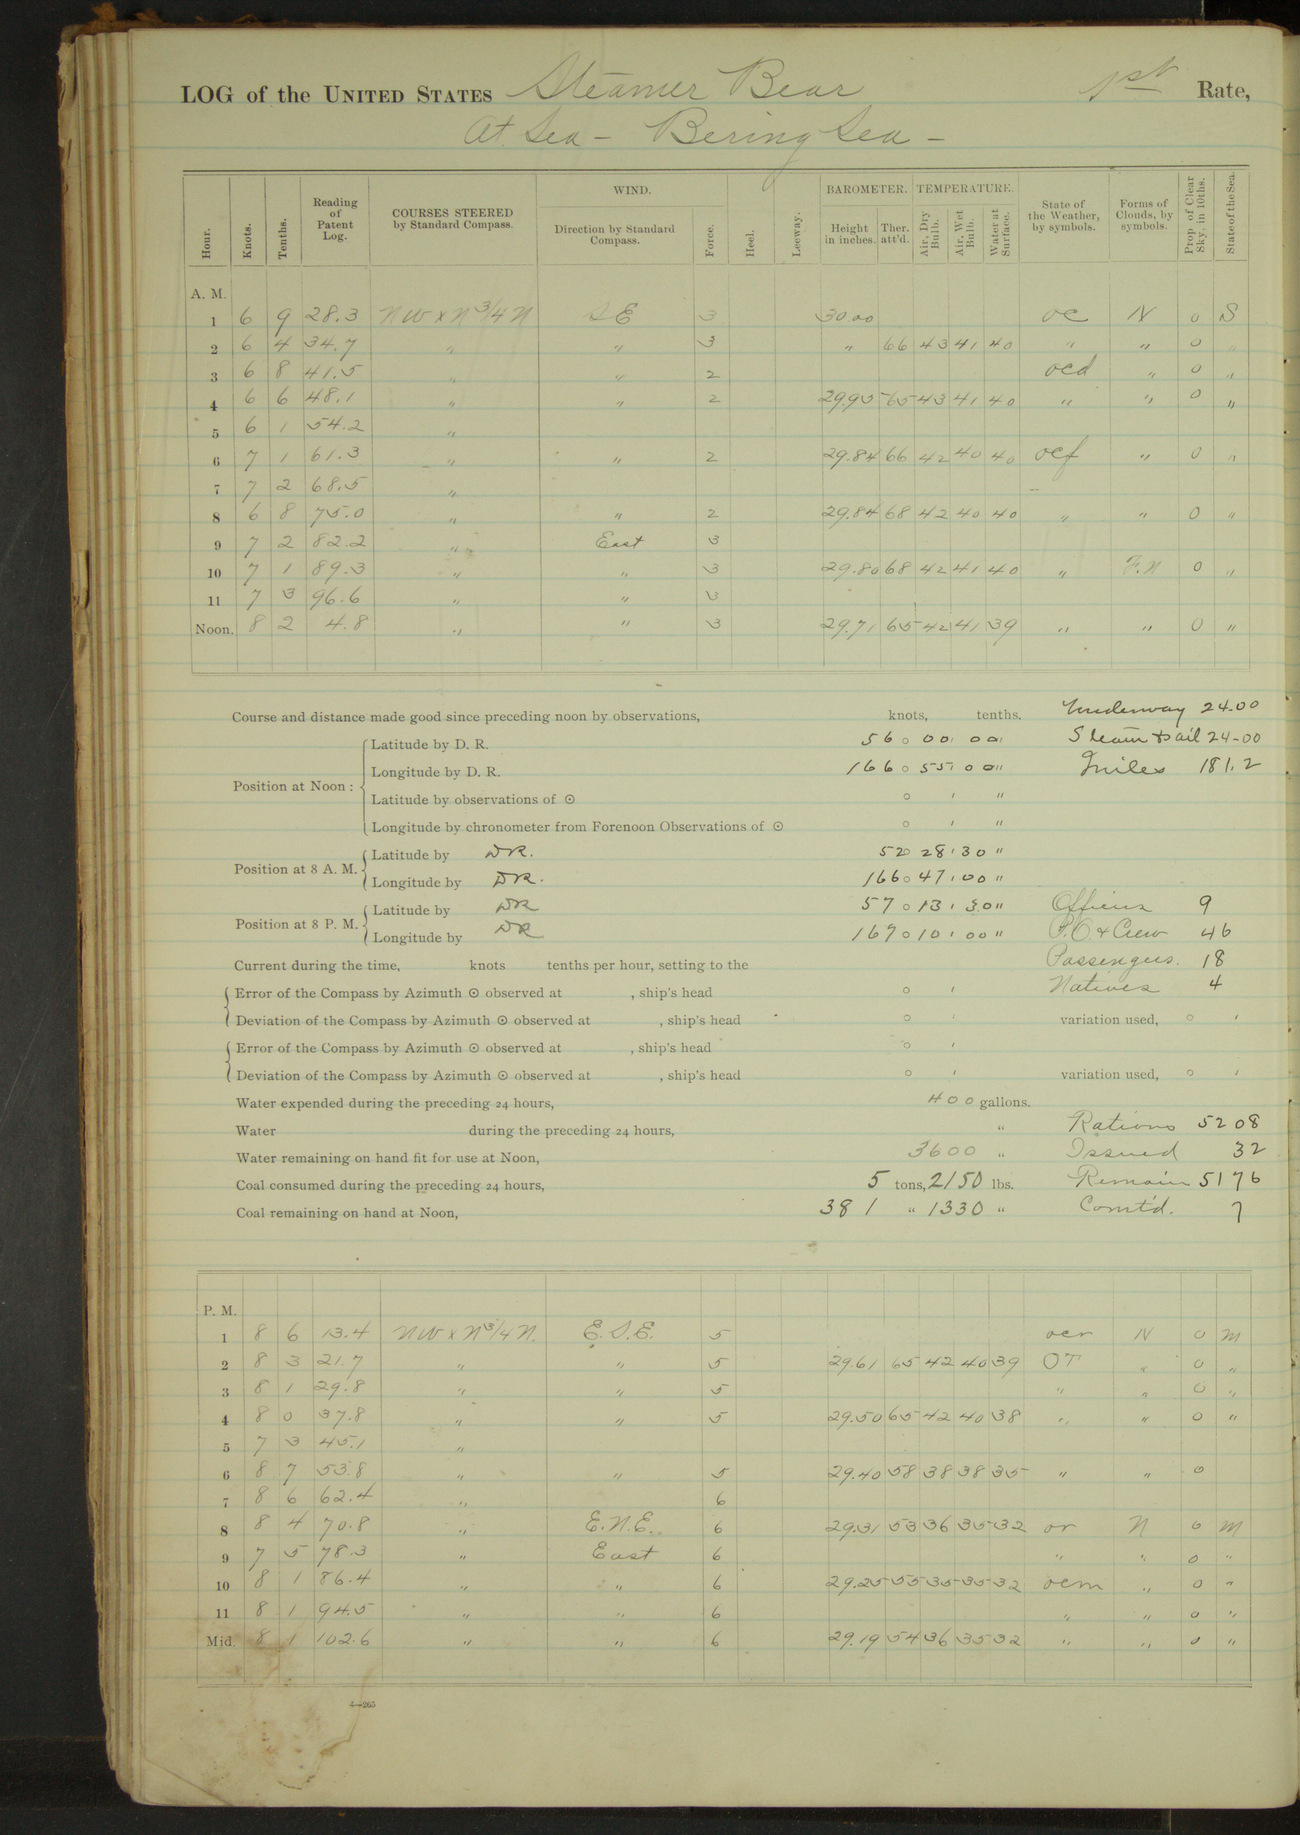 LOG of the UNITED STATES Steamer Bear 1st Rate,
At Sea – Bering Sea –
Hour. Knots. Tenths. Reading of Patent Log. COURSES STEERED by Standard Compass. WIND. Direction by Standard Compass. Force. Heel. Leeway. BAROMETER. Height in inches. Ther. att'd. TEMPERATURE. Air, Dry Bulb. Air, Wet Bulb. Water at Surface. State of the Weather, by symbols. Forms of Clouds, by symbols. Prop. of Clear Sky, in 10ths. State of the Sea.
A. M.
1 6 9 28.3 NW x N 3/4 N SE 3 30.00 oc N 0 S
2 6 4 34.7 " " 3 " 66 43 41 40 " " 0 "
3 6 8 41.5 " " 2 ocd " 0 "
4 6 6 48.1 " " 2 29.95 65 43 41 40 " " 0 "
5 6 1 54.2 "
6 7 1 61.3 " " 2 29.84 66 42 40 40 ocf " 0 "
7 7 2 68.5 "
8 6 8 75.0 " " 2 29.84 68 42 40 40 " " 0 "
9 7 2 82.2 " East 3
10 7 1 89.3 " " 3 29.80 68 42 41 40 " F.N 0 "
11 7 3 96.6 " " 3
Noon. 8 2 4.8 " " 3 29.71 65 42 41 39 " " 0 "
Course and distance made good since preceding noon by observations, knots, tenths. Underway 24-00
Position at Noon: Latitude by D. R. 56° 00' 00" Steam & Sail 24-00
Longitude by D. R. 166° 55' 00" Miles 181.2
Latitude by observations of ☉ ° ' "
Longitude by chronometer from Forenoon Observations of ☉ ° ' "
Position at 8 A. M. Latitude by DR. 52° 28' 30"
Longitude by DR. 166° 47' 00"
Position at 8 P. M. Latitude by DR 57° 13' 30" Officers 9
Longitude by DR 167° 10' 00" P.O. & Crew 46
Current during the time, knots tenths per hour, setting to the Passengers. 18
Error of the Compass by Azimuth ☉ observed at , ship's head ° ' Natives 4
Deviation of the Compass by Azimuth ☉ observed at , ship's head ° ' variation used, ° '
Error of the Compass by Azimuth ☉ observed at , ship's head ° '
Deviation of the Compass by Azimuth ☉ observed at , ship's head ° ' variation used, ° '
Water expended during the preceding 24 hours, 400 gallons.
Water during the preceding 24 hours, " Rations 5208
Water remaining on hand fit for use at Noon, 3600 " Issued 32
Coal consumed during the preceding 24 hours, 5 tons, 2150 lbs. Remain 5176
Coal remaining on hand at Noon, 381 " 1330 " Comt'd. 7
P. M.
1 8 6 13.4 NW x N 3/4 N. E.S.E. 5 ocr N 0 M
2 8 3 21.7 " " 5 29.61 65 42 40 39 OT " 0 "
3 8 1 29.8 " " 5 " " 0 "
4 8 0 37.8 " " 5 29.50 65 42 40 38 " " 0 "
5 7 3 45.1 "
6 8 7 53.8 " " 5 29.40 58 38 38 35 " " 0
7 8 6 62.4 " 6
8 8 4 70.8 " E.N.E. 6 29.31 53 36 35 32 or N 0 M
9 7 5 78.3 " East 6 " " 0 "
10 8 1 86.4 " " 6 29.25 55 35 35 32 ocm " 0 "
11 8 1 94.5 " " 6 " " 0 "
Mid. 8 1 102.6 " " 6 29.19 54 36 35 32 " " 0 "
4—265